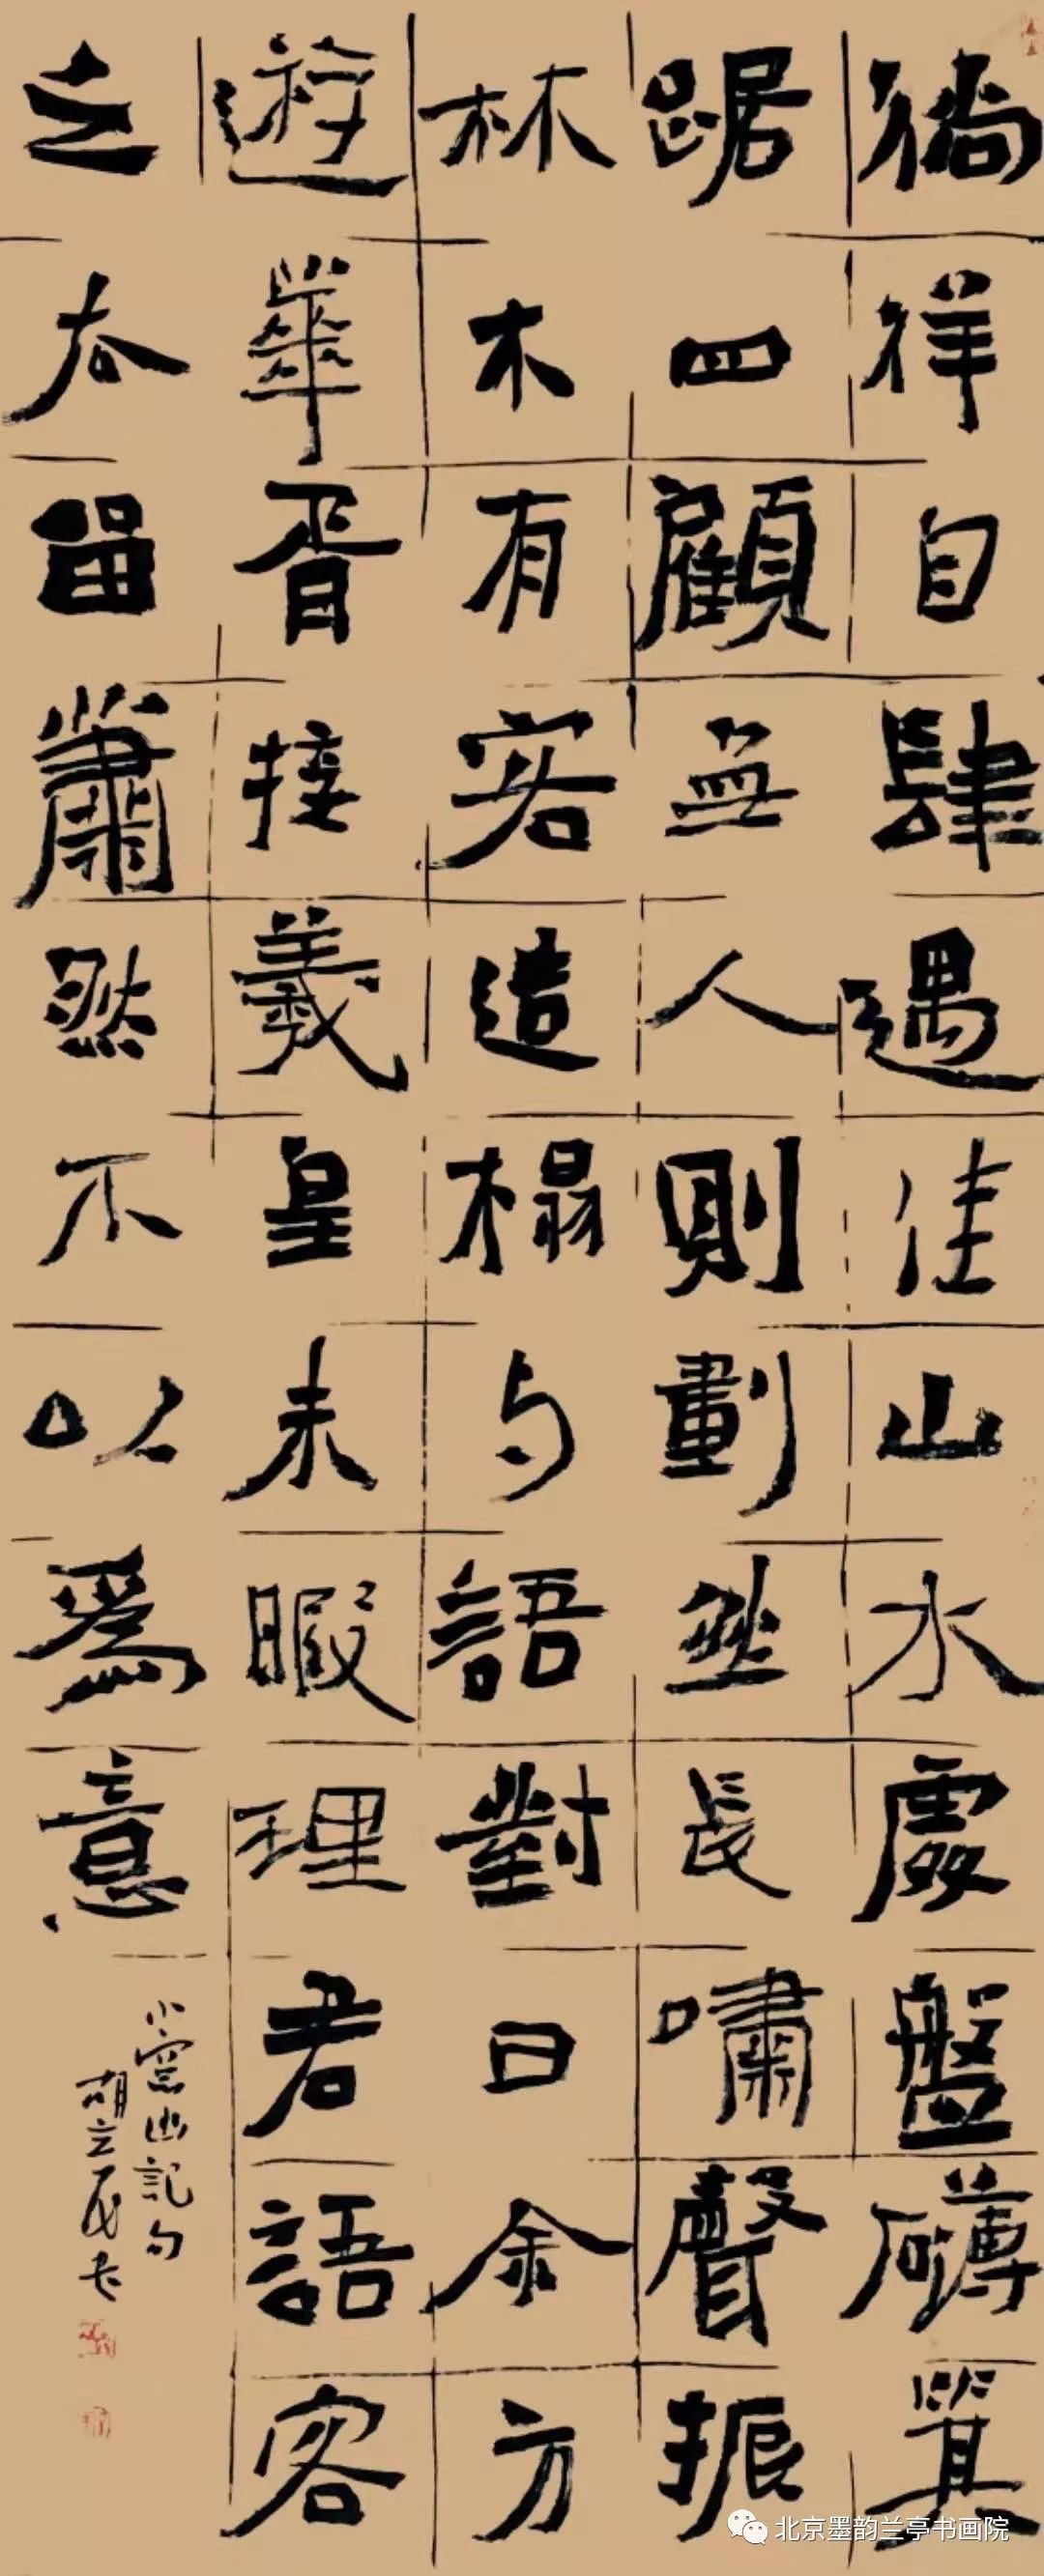 徜徉自肆遇佳山水處盤礴箕
踞四顧無人則劃然長嘯聲振
林木有客造榻与語對曰余方
遊華胥接羲皇未暇理君語客
之去留蕭然不以爲意
小窗幽記句
胡立民書
北京墨韵兰亭书画院